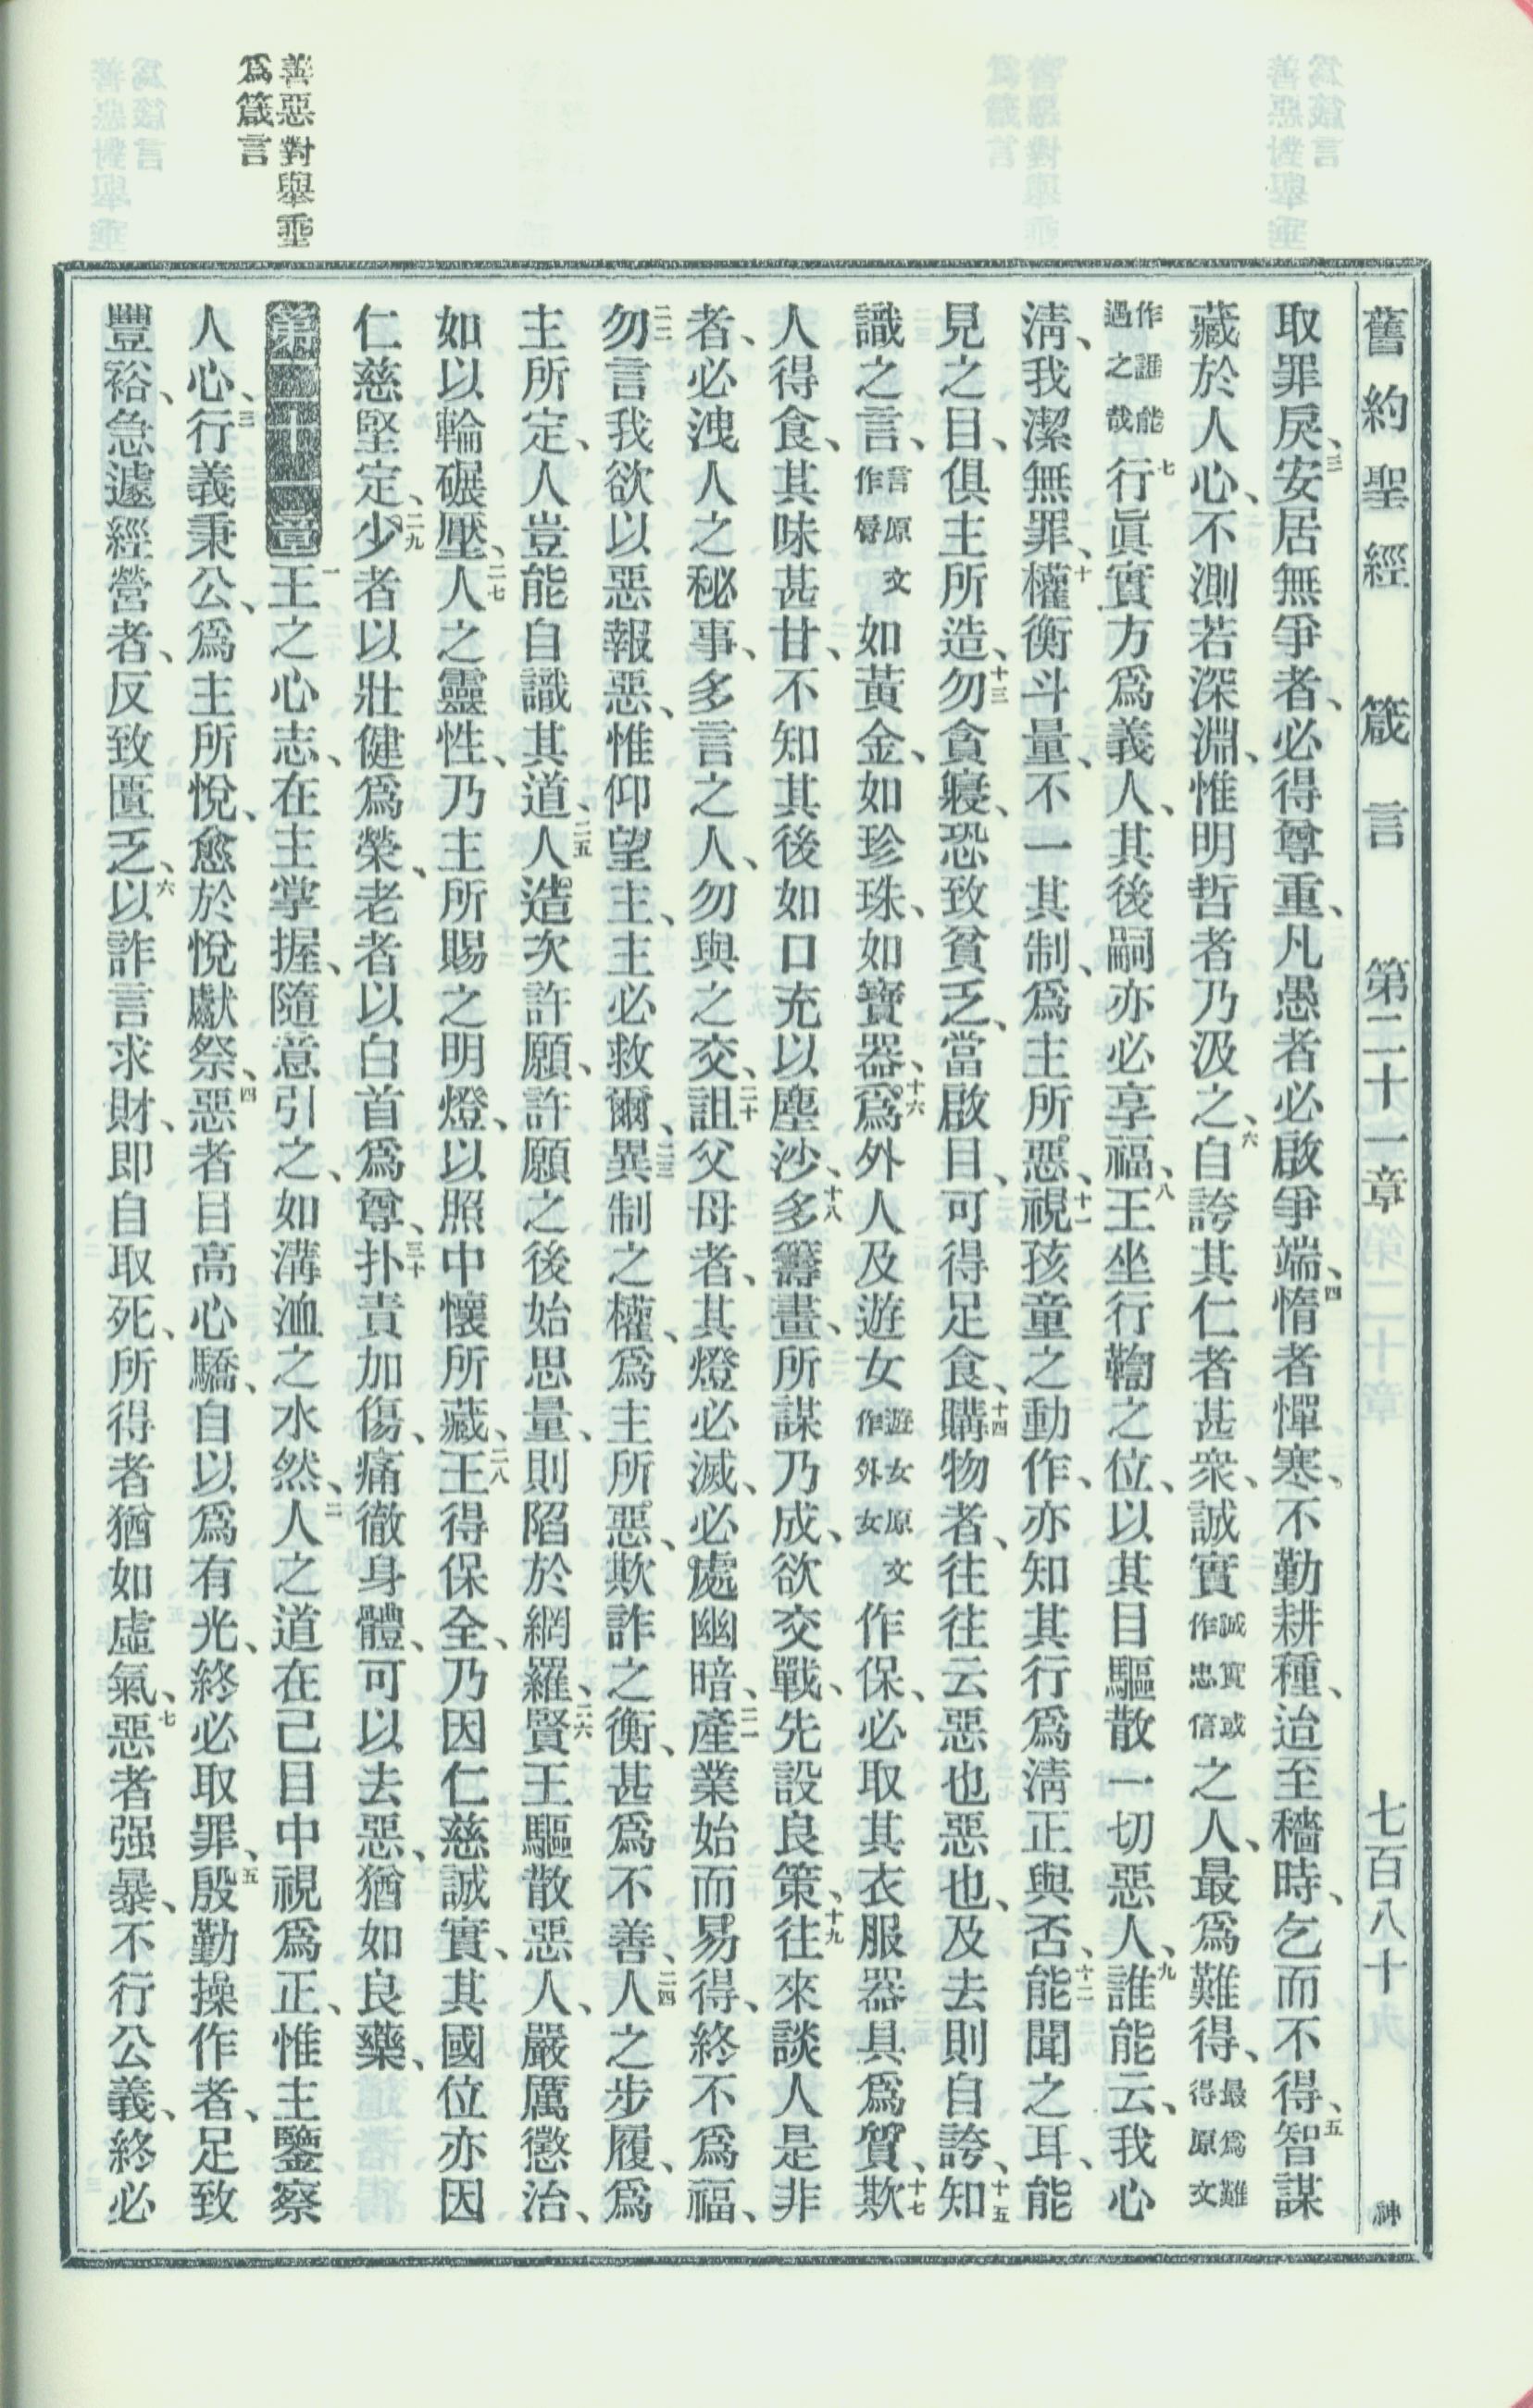 舊約聖經 箴言 第二十一章 七百八十 神
取罪戾、三安居無爭者、必得尊重、凡愚者必啟爭端、四惰者憚寒、不勤耕種、迨至穡時、乞而不得、五智謀
藏於人心、不測若深淵、惟明哲者乃汲之、六自誇其仁者甚衆、誠實誠實或作忠信之人、最爲難得、最爲難得原文
作誰能遇之哉七行眞實方爲義人、其後嗣亦必享福、八王坐行鞫之位、以其目驅散一切惡人、九誰能云、我心
淸、我潔無罪、十權衡斗量、不一其制、爲主所惡、十一視孩童之動作、亦知其行爲淸正與否、十二能聞之耳、能
見之目、俱主所造、十三勿貪寢、恐致貧乏、當啟目、可得足食、十四購物者、往往云惡也惡也、及去則自誇、十五知
識之言、言原文作脣如黃金、如珍珠、如寶器、十六爲外人及遊女遊女原文作外女作保、必取其衣服器具爲質、十七欺
人得食、其味甚甘、不知其後如口充以塵沙、十八多籌畫、所謀乃成、欲交戰、先設良策、十九往來談人是非
者、必洩人之秘事、多言之人、勿與之交、二十詛父母者、其燈必滅、必處幽暗、二一產業始而易得、終不爲福、
二二勿言我欲以惡報惡、惟仰望主、主必救爾、二三異制之權、爲主所惡、欺詐之衡、甚爲不善、二四人之步履、爲
主所定、人豈能自識其道、二五人造次許願、許願之後始思量、則陷於網羅、二六賢王驅散惡人、嚴厲懲治、
如以輪碾壓、二七人之靈性、乃主所賜之明燈、以照中懷所藏、二八王得保全、乃因仁慈誠實、其國位亦因
仁慈堅定、二九少者以壯健爲榮、老者以白首爲尊、三十扑責加傷、痛徹身體、可以去惡、猶如良藥、
第二十一章一王之心志、在主掌握、隨意引之、如溝洫之水然、二人之道在己目中視爲正、惟主鑒察
人心、三行義秉公、爲主所悅、愈於悅獻祭、四惡者目高心驕、自以爲有光、終必取罪、五殷勤操作者、足致
豐裕、急遽經營者、反致匱乏、六以詐言求財、即自取死、所得者猶如虛氣、七惡者强暴、不行公義、終必
善惡對舉垂
爲箴言